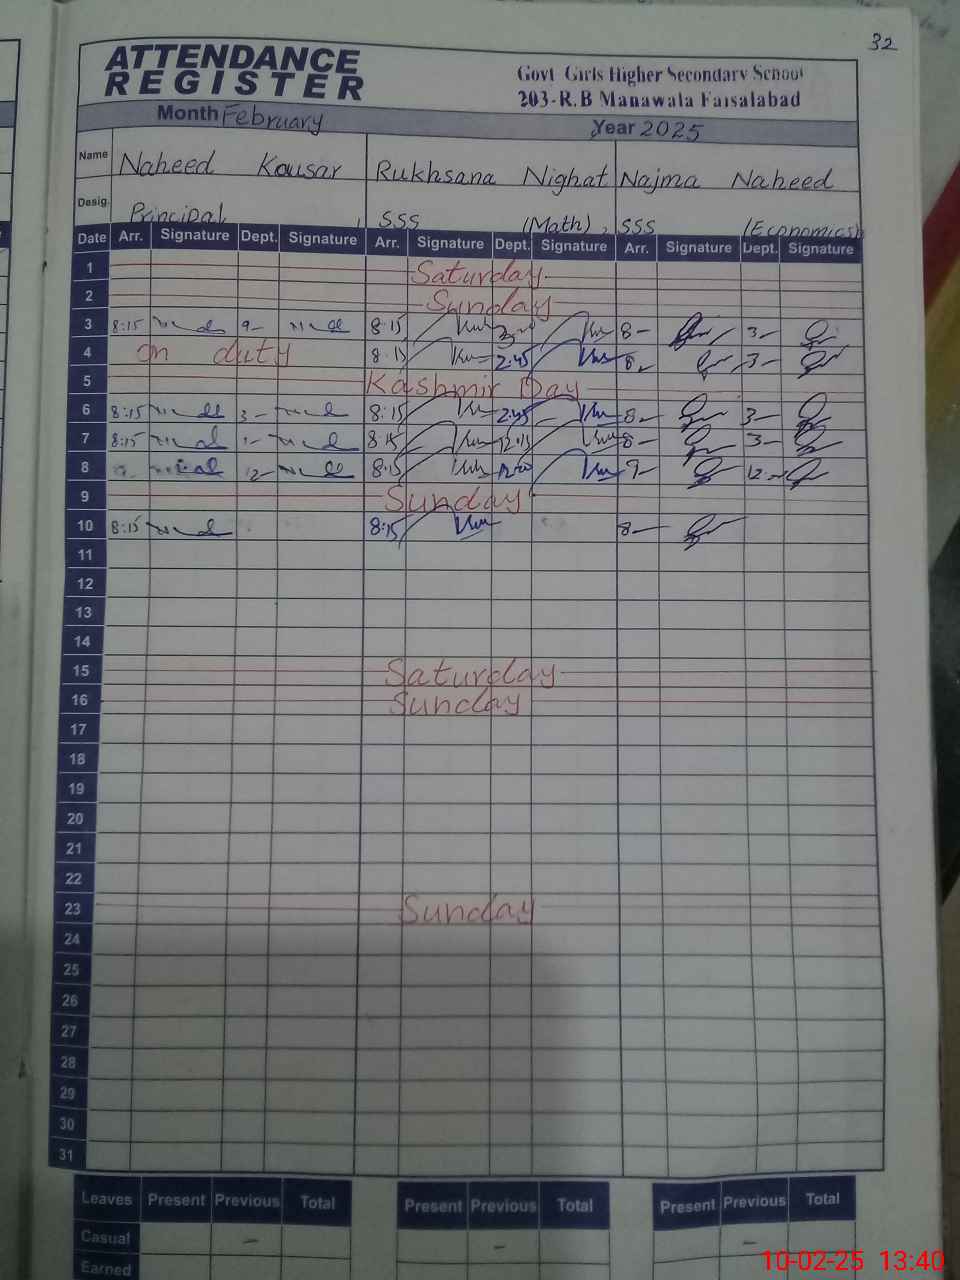 32
ATTENDANCE
REGISTER
Govt Girls Higher Secondary School
203-R.B Manawala Faisalabad
Month February Year 2025
Name Naheed Kausar Rukhsana Nighat Najma Naheed
Desig. Principal SSS (Math) SSS (Economics)
Date Arr. Signature Dept. Signature Arr. Signature Dept. Signature Arr. Signature Dept. Signature
1 Saturday
2 Sunday
3 8:15 8:15 8- 3-
4 On duty 8:15 2:45 3-
5 Kashmir Day
6 8:15 3- 8:15 2:45 8- 3-
7 8:15 8:15 8- 3-
8 12- 8:15 9- 12-
9 Sunday
10 8:15 8:15 8-
11
12
13
14
15 Saturday
16 Sunday
17
18
19
20
21
22
23 Sunday
24
25
26
27
28
29
30
31
Leaves Present Previous Total Present Previous Total Present Previous Total
Casual - - -
Earned
10-02-25 13:40